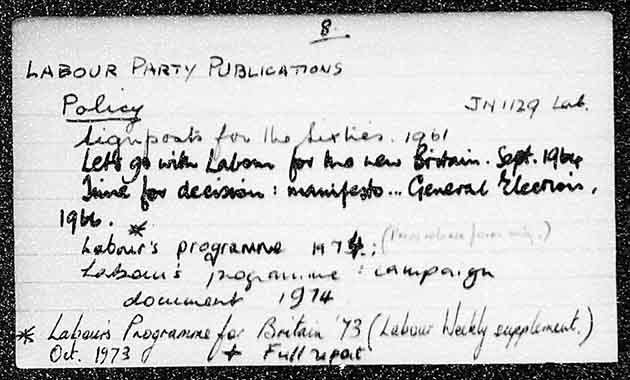 8.
LABOUR PARTY PUBLICATIONS
Policy JN1129 Lab.
Signposts for the Sixties. 1961
Let's go with Labour for the new Britain. Sept. 1964
Time for decision : manifesto... General Election,
1966. *
Labour's programme 197 ; (Press release form only.)
Labour's programme : campaign
document 1974
* Labour's Programme for Britain '73 (Labour Weekly supplement.)
Oct. 1973 + Full report